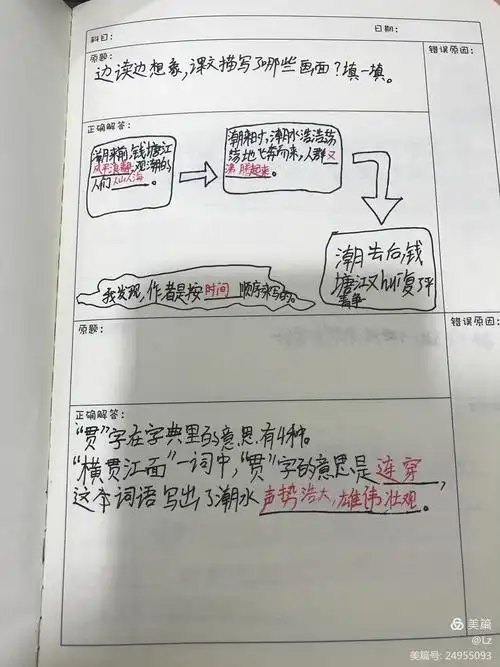 科目: 日期:
原题: 错误原因:
边读边想象,课文描写了哪些画面?填一填。
正确解答:
潮来前,钱塘江
风平浪静,观潮的
人们人山人海。
潮来时,潮水浩浩荡
荡地飞奔而来,人群又
沸腾起来。
潮去后,钱
塘江又恢复了平
静
我发现,作者是按时间顺序来写的。
原题: 错误原因:
正确解答:
“贯”字在字典里的意思有4种。
“横贯江面”一词中,“贯”字的意思是连穿,
这个词语写出了潮水声势浩大,雄伟壮观。
美篇
@Lz
美篇号: 24955093